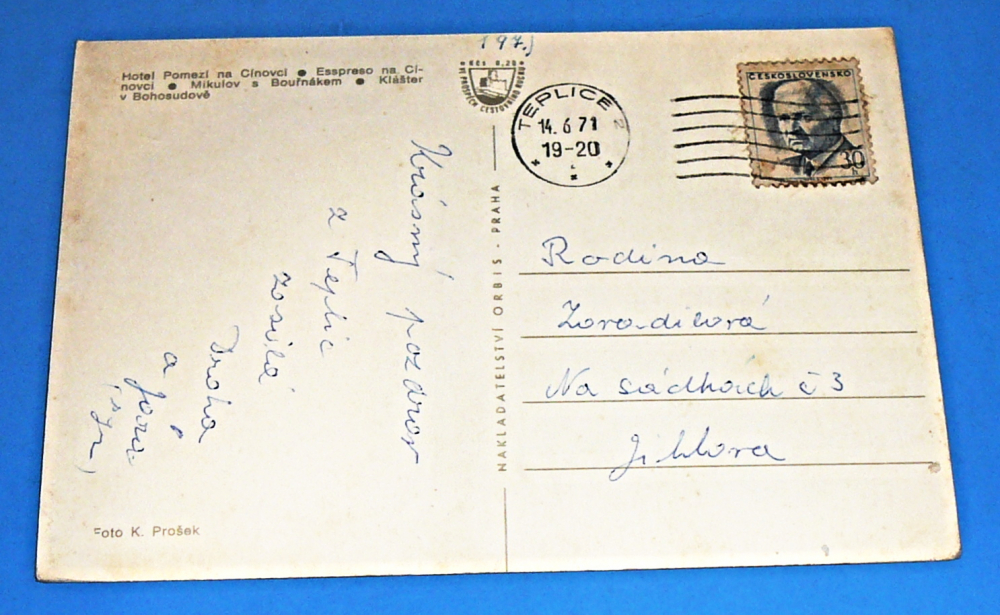 197.)
Hotel Pomezí na Cínovci ● Esspreso na Cí-
novci ● Mikulov s Bouřňákem ● Klášter
v Bohosudově
KČs 0,20
VE PROSPĚCH CESTOVNÍHO RUCHU
TEPLICE 2
14. 6 71
19-20
ČESKOSLOVENSKO
30
h
Krásný pozdrav
z Teplic
zasílá
Draha
a Jára
NAKLADATELSTVÍ ORBIS - PRAHA
Rodina
Na sádkách č 3
Jihlava
Foto K. Prošek